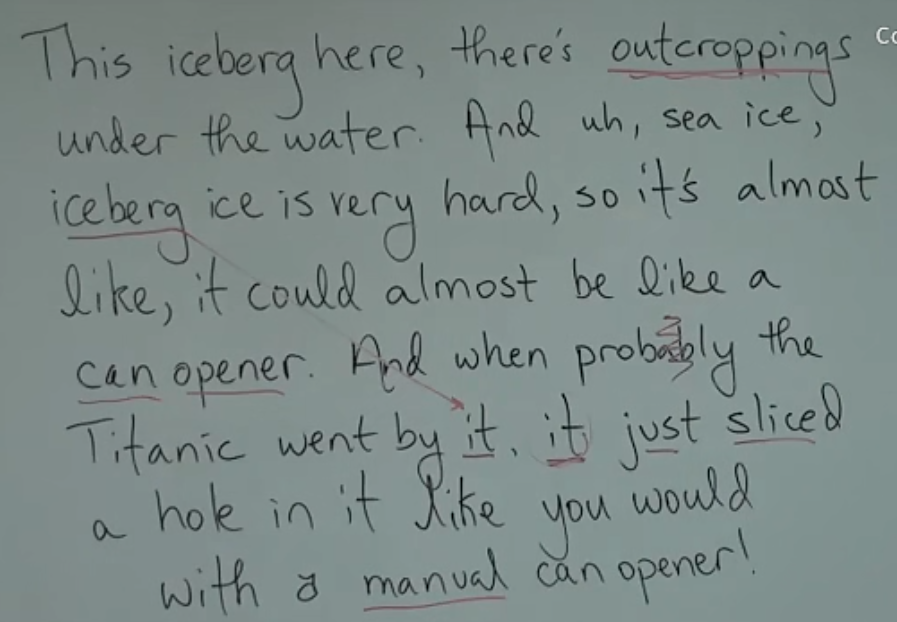 This iceberg here, there's outcroppings
under the water. And uh, sea ice,
iceberg ice is very hard, so it's almost
like, it could almost be like a
can opener. And when probably the
Titanic went by it, it just sliced
a hole in it like you would
with a manual can opener!